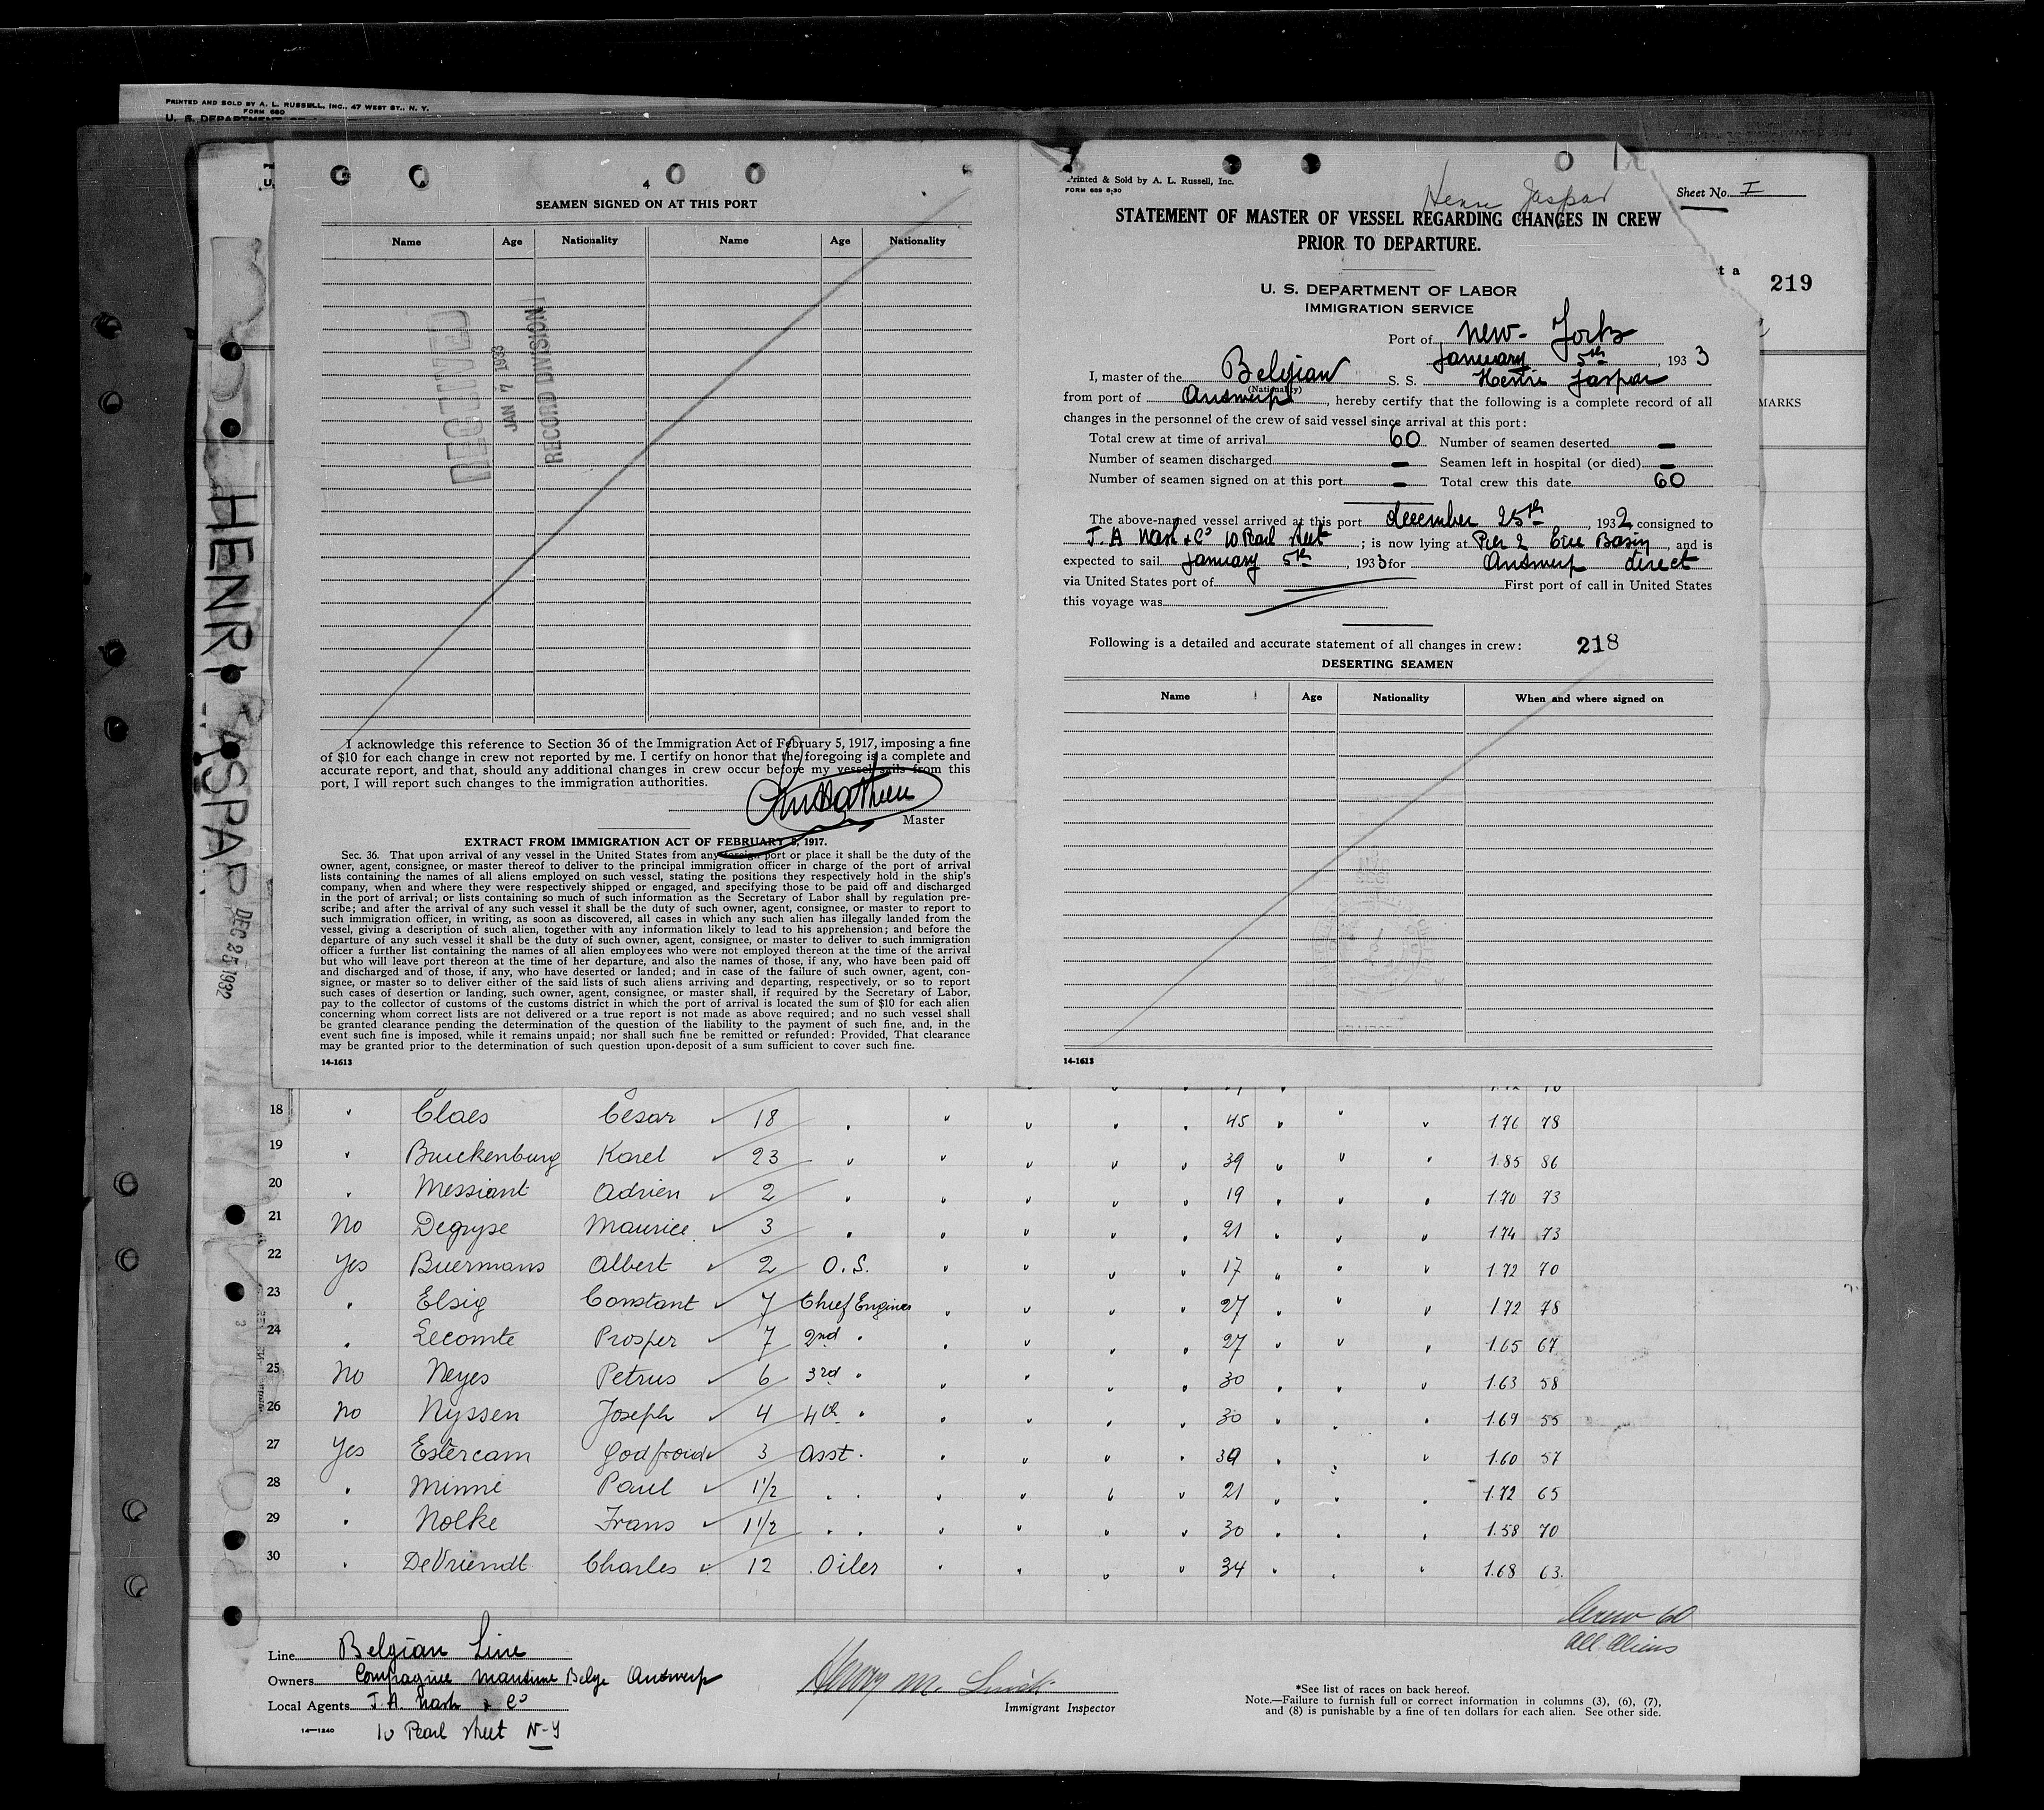 PRINTED AND SOLD BY A. L. RUSSELL, INC., 47 WEST ST., N. Y.
FORM 680
U. S. DEPARTMENT
4
SEAMEN SIGNED ON AT THIS PORT
Name Age Nationality Name Age Nationality
RECEIVED
JAN 7 1933
RECORD DIVISION
I acknowledge this reference to Section 36 of the Immigration Act of February 5, 1917, imposing a fine
of $10 for each change in crew not reported by me. I certify on honor that the foregoing is a complete and
accurate report, and that, should any additional changes in crew occur before my vessel sails from this
port, I will report such changes to the immigration authorities.
Master
EXTRACT FROM IMMIGRATION ACT OF FEBRUARY 5, 1917.
Sec. 36. That upon arrival of any vessel in the United States from any foreign port or place it shall be the duty of the
owner, agent, consignee, or master thereof to deliver to the principal immigration officer in charge of the port of arrival
lists containing the names of all aliens employed on such vessel, stating the positions they respectively hold in the ship's
company, when and where they were respectively shipped or engaged, and specifying those to be paid off and discharged
in the port of arrival; or lists containing so much of such information as the Secretary of Labor shall by regulation pre-
scribe; and after the arrival of any such vessel it shall be the duty of such owner, agent, consignee, or master to report to
such immigration officer, in writing, as soon as discovered, all cases in which any such alien has illegally landed from the
vessel, giving a description of such alien, together with any information likely to lead to his apprehension; and before the
departure of any such vessel it shall be the duty of such owner, agent, consignee, or master to deliver to such immigration
officer a further list containing the names of all alien employees who were not employed thereon at the time of the arrival
but who will leave port thereon at the time of her departure, and also the names of those, if any, who have been paid off
and discharged and of those, if any, who have deserted or landed; and in case of the failure of such owner, agent, con-
signee, or master so to deliver either of the said lists of such aliens arriving and departing, respectively, or so to report
such cases of desertion or landing, such owner, agent, consignee, or master shall, if required by the Secretary of Labor,
pay to the collector of customs of the customs district in which the port of arrival is located the sum of $10 for each alien
concerning whom correct lists are not delivered or a true report is not made as above required; and no such vessel shall
be granted clearance pending the determination of the question of the liability to the payment of such fine, and, in the
event such fine is imposed, while it remains unpaid; nor shall such fine be remitted or refunded: Provided, That clearance
may be granted prior to the determination of such question upon deposit of a sum sufficient to cover such fine.
14-1613
Printed & Sold by A. L. Russell, Inc.
FORM 689 8-30
Henri Jaspar
Sheet No. I
STATEMENT OF MASTER OF VESSEL REGARDING CHANGES IN CREW
PRIOR TO DEPARTURE.
t a
219
U. S. DEPARTMENT OF LABOR
IMMIGRATION SERVICE
Port of New-York
January 5th, 1933
I, master of the Belgian S. S. Henri Jaspar
(Nationality)
from port of Antwerp, hereby certify that the following is a complete record of all
MARKS
changes in the personnel of the crew of said vessel since arrival at this port:
Total crew at time of arrival 60 Number of seamen deserted -
Number of seamen discharged - Seamen left in hospital (or died) -
Number of seamen signed on at this port - Total crew this date 60
The above-named vessel arrived at this port december 25th, 1932 consigned to
J. A Nash & Co 10 Pearl Street; is now lying at Pier 2 Erie Basin, and is
expected to sail January 5th, 1933 for Antwerp direct
via United States port of First port of call in United States
this voyage was
Following is a detailed and accurate statement of all changes in crew: 218
DESERTING SEAMEN
Name Age Nationality When and where signed on
14-1613
HENRI JASPAR DEC 25 1932
18 " Claes Cesar 18 " " " " " 45 " " " 1.76 78
19 " Bruckenburg Karel 23 " " " " " 39 " " " 1.85 86
20 " Messiant Adrien 2 " " " " " 19 " " " 1.70 73
21 No Degryse Maurice 3 " " " " " 21 " " " 1.74 73
22 Yes Buermans Albert 2 O.S. " " " " 17 " " " 1.72 70
23 " Elsig Constant 7 Chief Engineer " " " " 27 " " " 1.72 78
24 " Lecomte Prosper 7 2nd " " " " " 27 " " " 1.65 67
25 No Neyes Petrus 6 3rd " " " " " 30 " " " 1.63 58
26 No Nyssen Joseph 4 4th " " " " " 30 " " " 1.69 55
27 Yes Estercam Godfroid 3 Asst. " " " " 39 " " " 1.60 57
28 " Minne Paul 1 1/2 " " " " " " 21 " " " 1.72 65
29 " Nolke Frans 1 1/2 " " " " " " 30 " " " 1.58 70
30 " DeVriendt Charles 12 Oiler " " " " 34 " " " 1.68 63
Crew 60
All Aliens
Line Belgian Line
Owners Compagnie Maritime Belge Antwerp
Local Agents J. A. Nash & Co
10 Pearl Street N-Y
14-1240
Henry M.
Immigrant Inspector
*See list of races on back hereof.
Note.—Failure to furnish full or correct information in columns (3), (6), (7),
and (8) is punishable by a fine of ten dollars for each alien. See other side.